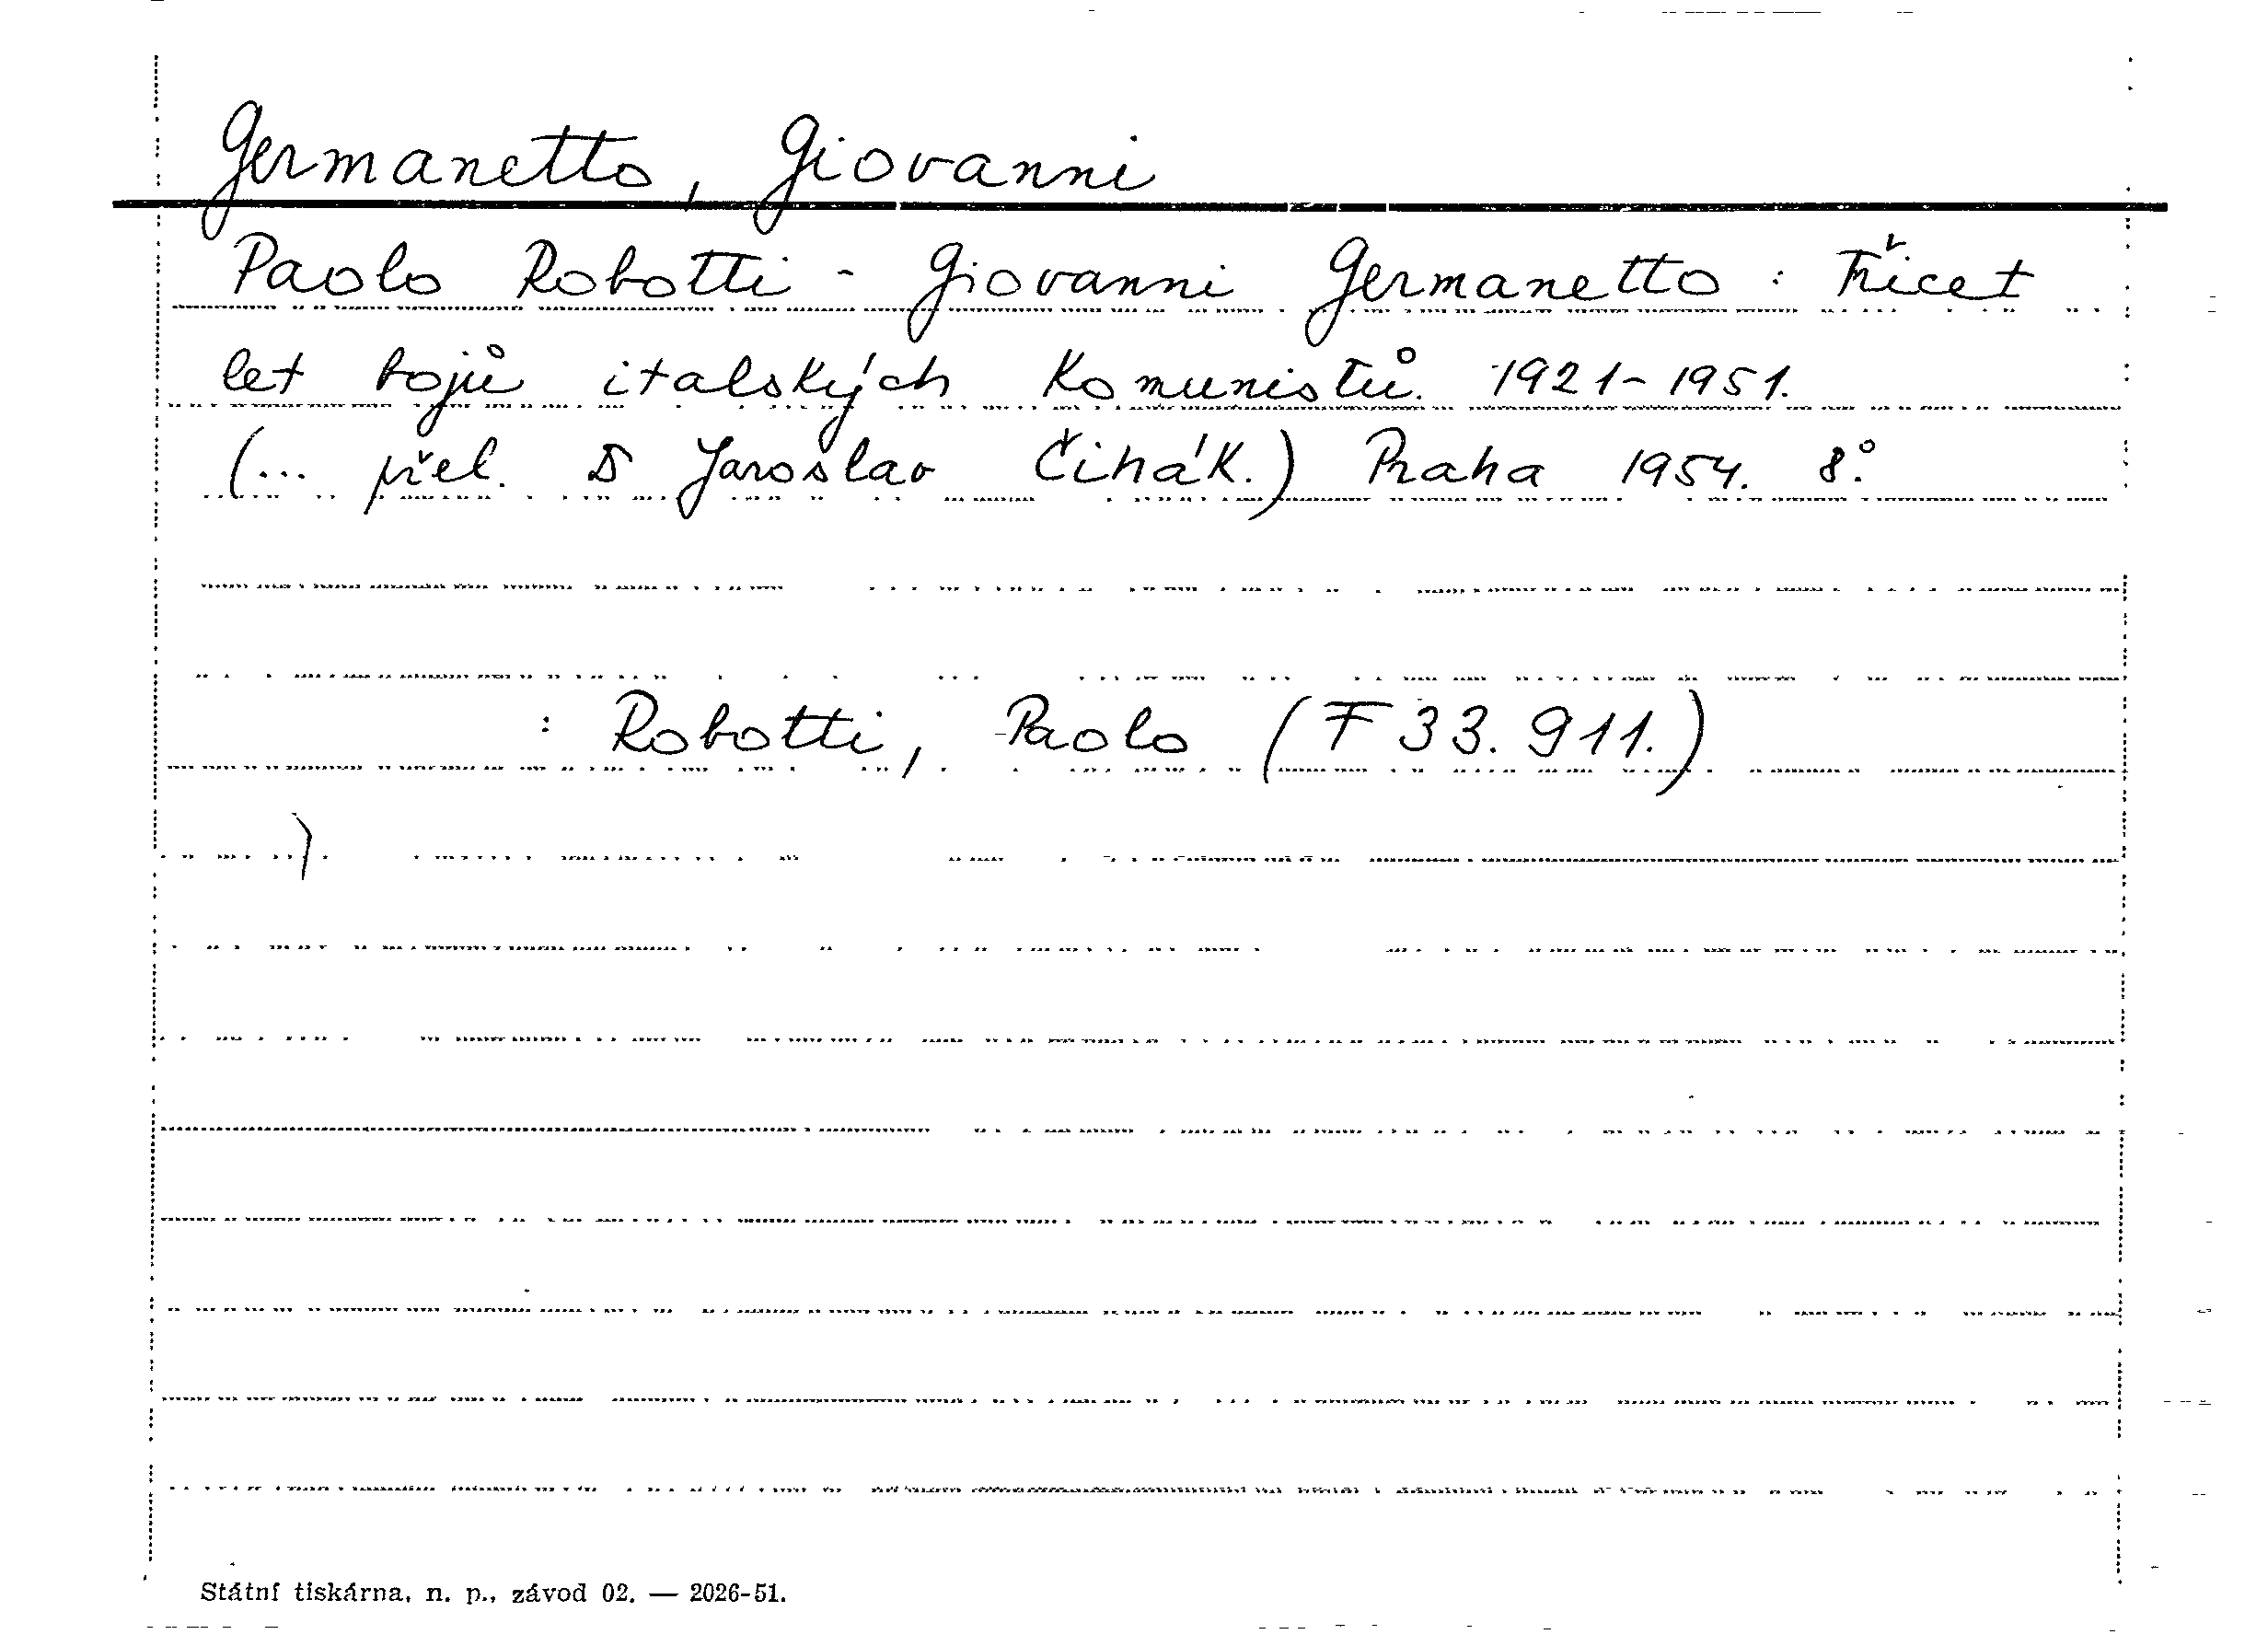 Germanetto, Giovanni
Paolo Robotti - Giovanni Germanetto : Třicet
let bojů italských komunistů. 1921-1951.
(... přel. D Jaroslav Čihák.) Praha 1954. 8°.
: Robotti, Paolo (F 33.911.)
Státní tiskárna, n. p., závod 02. — 2026-51.